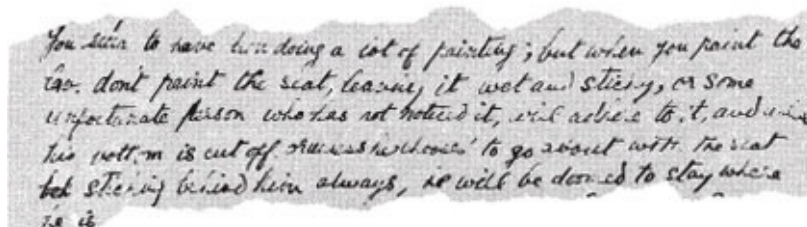 You seem to have been doing a lot of painting; but when you paint the
lav. don't paint the seat, leaving it wet and sticky, or some
unfortunate person who has not noticed it, will adhere to it, and unless
his bottom is cut off, unless he chooses to go about with the seat
sticking behind him always, he will be doomed to stay where
he is